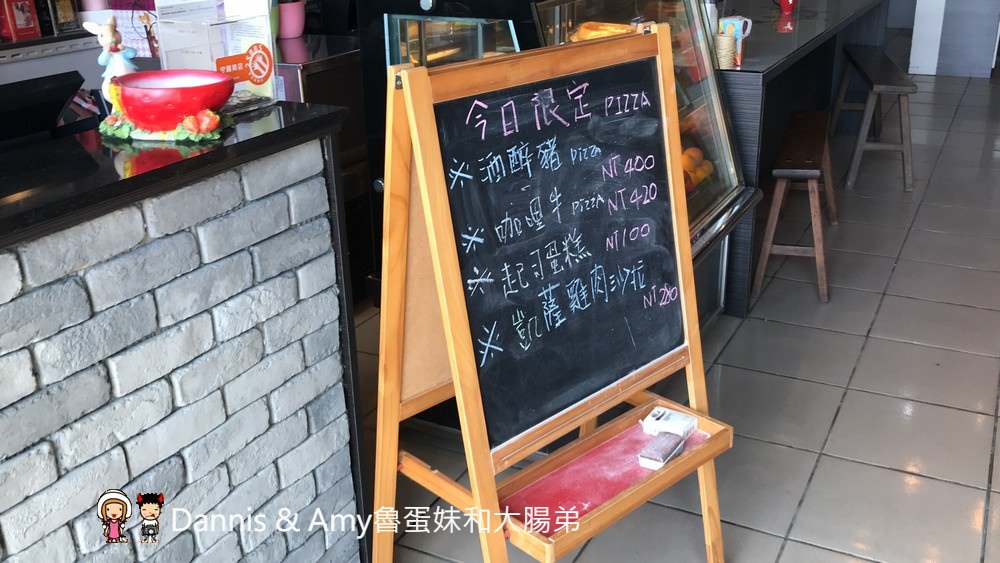 今日限定 PIZZA
※酒醉豬 PIZZA NT 400
※咖哩牛 PIZZA NT 420
※起司蛋糕 NT 100
※凱薩雞肉沙拉 NT 280
Dannis & Amy魯蛋妹和大腸弟